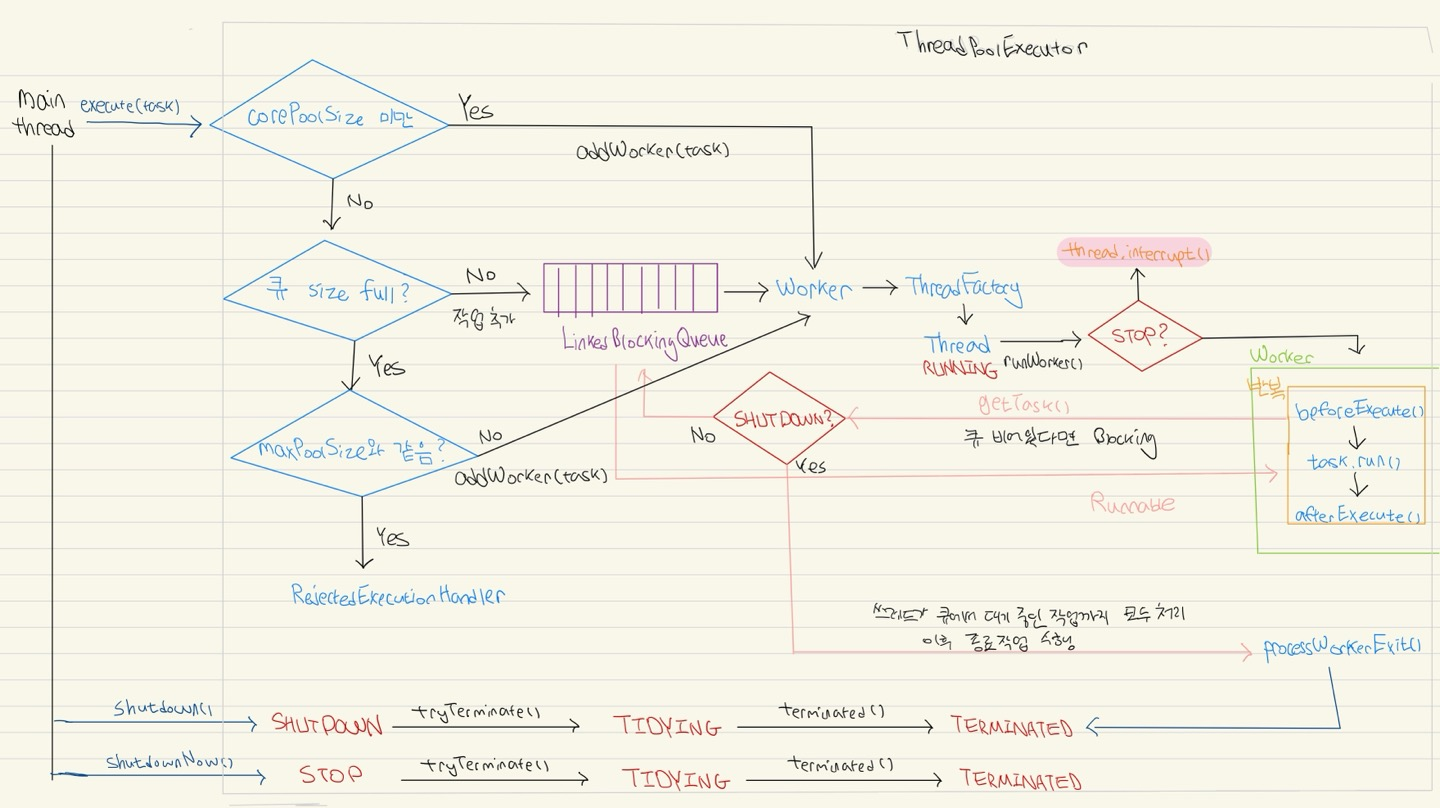 ThreadPoolExecutor
main
thread
execute(task)
corePoolSize 미만
Yes
addWorker(task)
No
큐 size full?
No
작업 추가
LinkedBlockingQueue
Worker
ThreadFactory
Thread
RUNNING
runWorker()
STOP?
thread.interrupt()
Worker
반복
beforeExecute()
task.run()
afterExecute()
getTask()
큐 비어있다면 Blocking
SHUTDOWN?
No
Yes
Runnable
Yes
maxPoolSize와 같음?
No
addWorker(task)
Yes
RejectedExecutionHandler
쓰레드가 큐에서 대기 중인 작업까지 모두 처리
이후 종료작업 수행
processWorkerExit()
shutdown()
SHUTDOWN
tryTerminate()
TIDYING
terminated()
TERMINATED
shutdownNow()
STOP
tryTerminate()
TIDYING
terminated()
TERMINATED